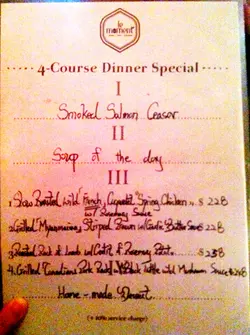 le
moment
4-Course Dinner Special
I
Smoked Salmon Ceasar
II
Soup of the day
III
1. Slow Roasted wild French Spring Chicken $ 228
w/ Sauce
2. Grilled Stripped Prawn w/ Garlic Butter Sauce $ 228
3. Roasted Rack of Lamb w/ Garlic & Rosemary $ 238
4. Grilled Canadians Pork w/ Black Truffle and Mushroom Sauce $ 248
Home-made Dessert
(+ 10% service charge)